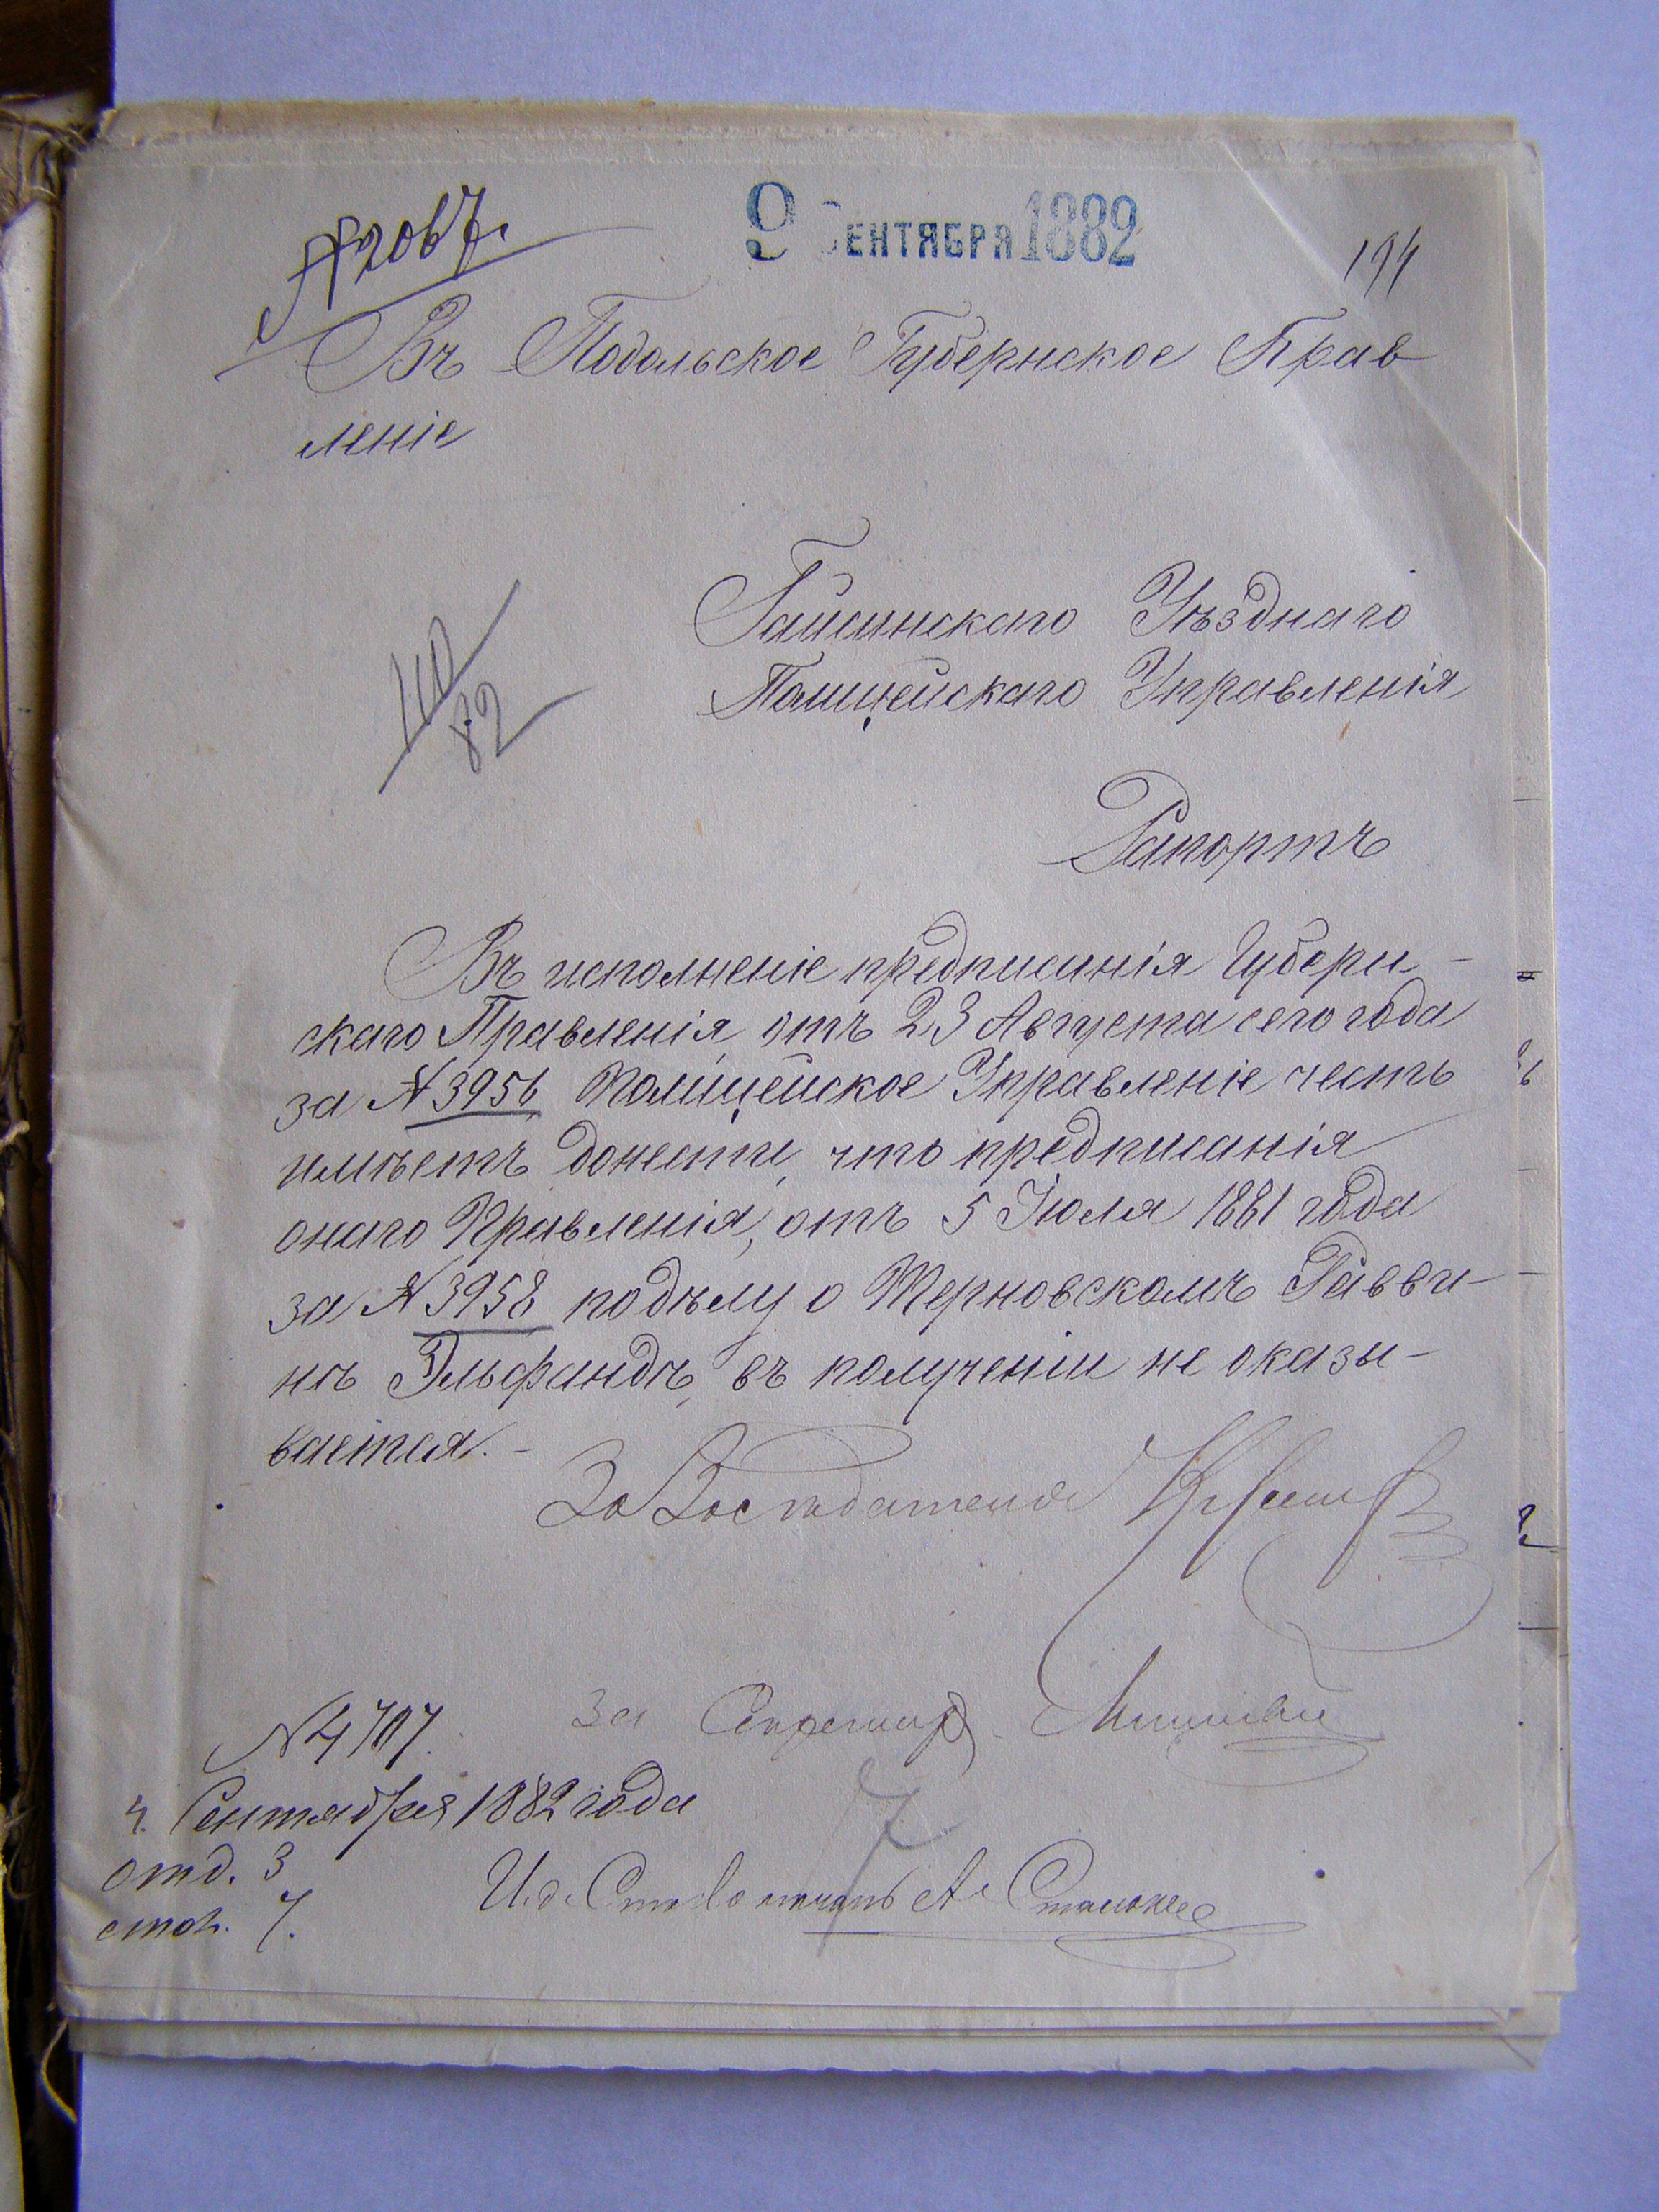 9 СЕНТЯБРЯ 1882
194
Въ Подольское Губернское Прав
леніе
110
82
Гайсинскаго Уѣзднаго
Полицейскаго Управленія
Рапортъ
Въ исполненіе предписанія Губерн-
скаго Правленія, отъ 23 Августа сего года
за № 3956 Полицейское Управленіе честь
имѣетъ донести, что предписанія
онаго Правленія, отъ 5 Іюля 1881 года
за № 3958 по дѣлу о Терновскомъ Равви-
нѣ Эльфандѣ, въ полученіи не оказы-
вается.-
За
За Секретаря
№ 4707.
4. Сентября 1882 года
отд. 3
стол. 7.
7
И.д. Столоначаль А.